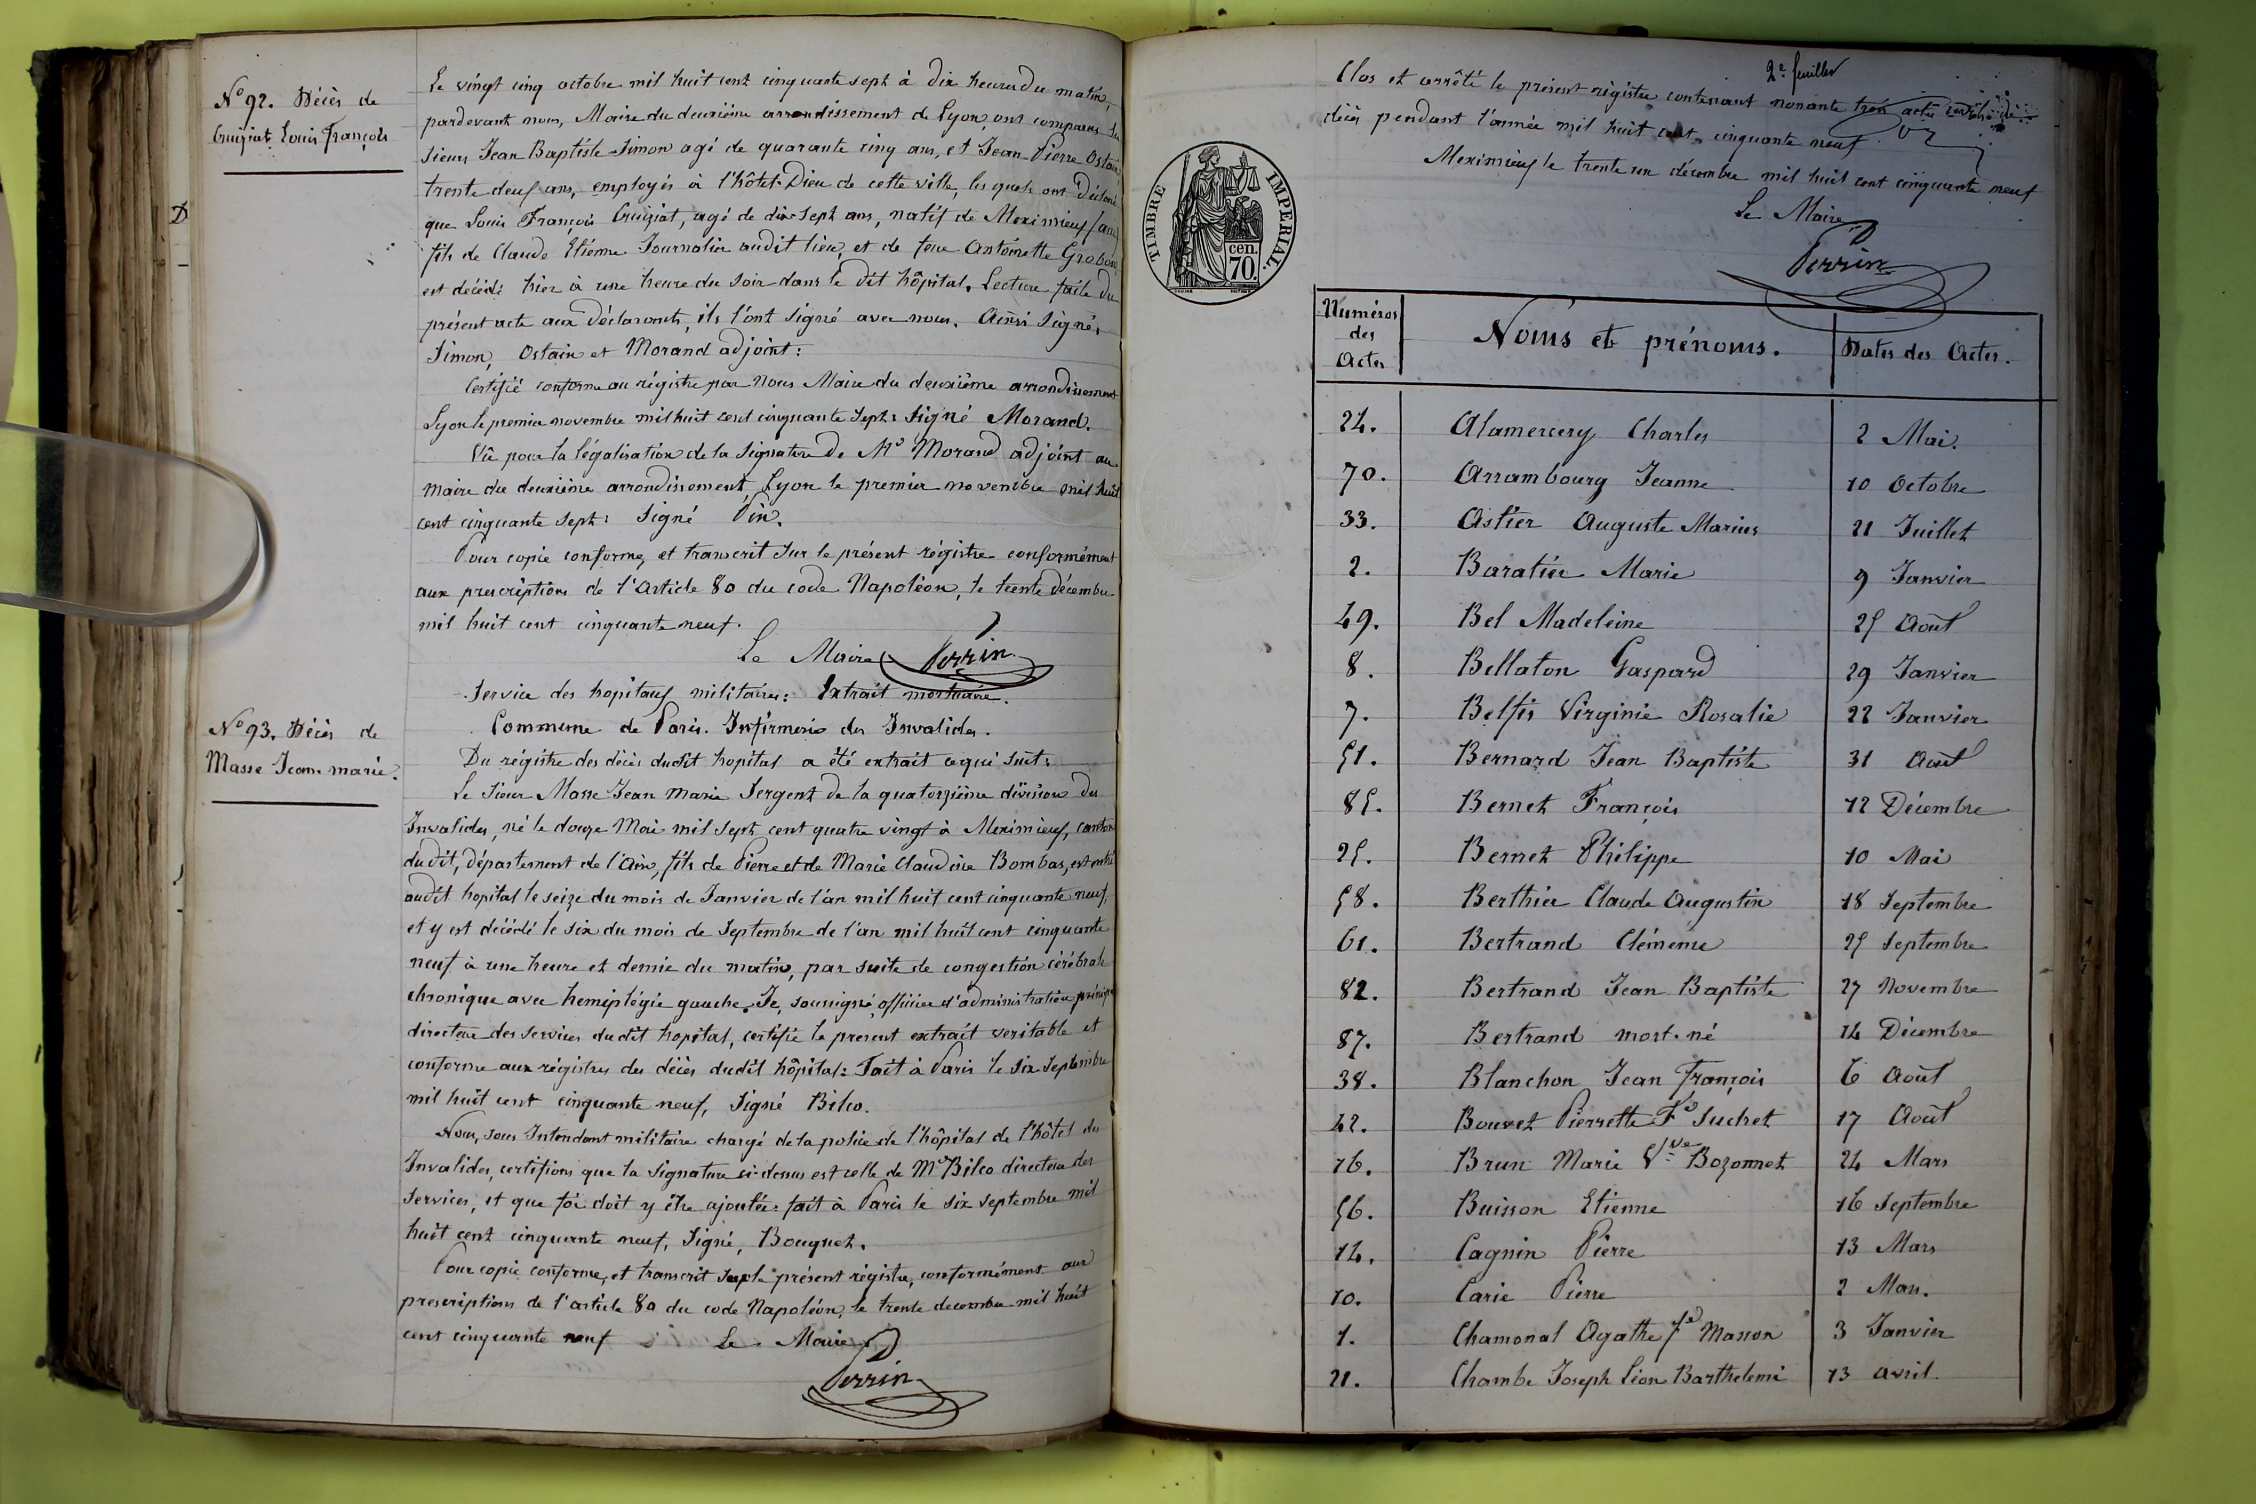 N° 92. Décès de
Cruiziat Louis François
Le vingt cinq octobre mil huit cent cinquante sept à dix heures du matin,
pardevant nous, Maire du deuxième arrondissement de Lyon, ont comparus les
sieurs Jean Baptiste Simon agé de quarante cinq ans, et Jean Pierre Ostain
trente deux ans, employés à l'hôtel-Dieu de cette ville, lesquels ont déclaré
que Louis François Cruiziat, agé de dix-sept ans, natif de Meximieux (ain)
fils de Claude Etienne Journalier audit lieu, et de feue Antoinette
est décédé hier à une heure du soir dans le dit hôpital. Lecture faite du
présent acte aux déclarants, ils l'ont signé avec nous. Ainsi signé,
Simon, Ostain et Morand adjoint:
Certifié conforme au régistre par Nous Maire du deuxième arrondissement
Lyon le premier novembre mil huit cent cinquante sept: signé Morand.
Vû pour la légalisation de la signature de Mr Morand adjoint au
maire du deuxième arrondissement, Lyon le premier novembre mil huit
cent cinquante sept: signé Pin.
Pour copie conforme, et transcrit sur le présent régistre conformément
aux prescriptions de l'Article 80 du code Napoléon, le trente décembre
mil huit cent cinquante neuf.
Le Maire Perrin
N° 93. Décès de
Masse Jean marie.
Service des hopitaux militaires: Extrait mortuaire.
Commune de Paris. Infirmerie des Invalides.
Du régistre des décès dudit hopital a été extrait ce qui suit:
Le sieur Masse Jean Marie Sergent de la quatorzième division des
Invalides, né le douze Mai mil sept cent quatre vingt à Meximieux, canton
du dit, département de l'Ain, fils de Pierre et de Marie Claudine Bombas, est entré
audit hopital le seize du mois de Janvier de l'an mil huit cent cinquante neuf,
et y est décédé le six du mois de Septembre de l'an mil huit cent cinquante
neuf à une heure et demie du matin, par suite de congestion cérébrale
chronique avec hemiplégie gauche. Je, soussigné, officier d'administration
directeur des services dudit hopital, certifie le present extrait veritable et
conforme aux régistres des décès dudit hôpital: Fait à Paris le six Septembre
mil huit cent cinquante neuf, signé Bilco.
Nous, sous Intendant militaire chargé de la police de l'hôpital de l'hôtel des
Invalides, certifions que la signature ci-dessus est celle de Mr Bilco directeur des
services, et que foi doit y être ajoutée: fait à Paris le six septembre mil
huit cent cinquante neuf, Signé, Bouquet.
Pour copie conforme, et transcrit sur le présent régistre, conformément aux
prescriptions de l'article 80 du code Napoléon, le trente decembre mil huit
cent cinquante neuf Le Maire
Perrin
2e feuillet
Clos et arrêté le présent régistre contenant nonante trois actes
décès pendant l'année mil huit cent cinquante neuf.
Meximieux le trente un décembre mil huit cent cinquante neuf
Le Maire
Perrin
TIMBRE IMPERIAL.
cen.
70.
Numéros des Actes Noms et prénoms. Dates des Actes.
24. Alamercery Charles 2 Mai.
70. Arrambourg Jeanne 10 Octobre
33. Astier Auguste Marius 21 Juillet
2. Baratier Marie 9 Janvier
49. Bel Madeleine 25 Août
8. Bellaton Gaspard 29 Janvier
7. Belfis Virginie Rosalie 22 Janvier
51. Bernard Jean Baptiste 31 Août
85. Bernet François 12 Décembre
25. Bernet Philippe 10 Mai
58. Berthier Claude Augustin 18 Septembre
61. Bertrand Clémence 25 Septembre
82. Bertrand Jean Baptiste 27 Novembre
87. Bertrand mort-né 14 Décembre
38. Blanchon Jean François 6 Août
42. Bouvet Pierrette Fe Suchet 17 Août
16. Brun Marie Vve Bozonnet 24 Mars
56. Buisson Etienne 16 Septembre
14. Cagnin Pierre 13 Mars
10. Carie Pierre 2 Mars.
1. Chamonal Agathe fe Masson 3 Janvier
21. Chambe Joseph Léon Barthelemi 13 avril